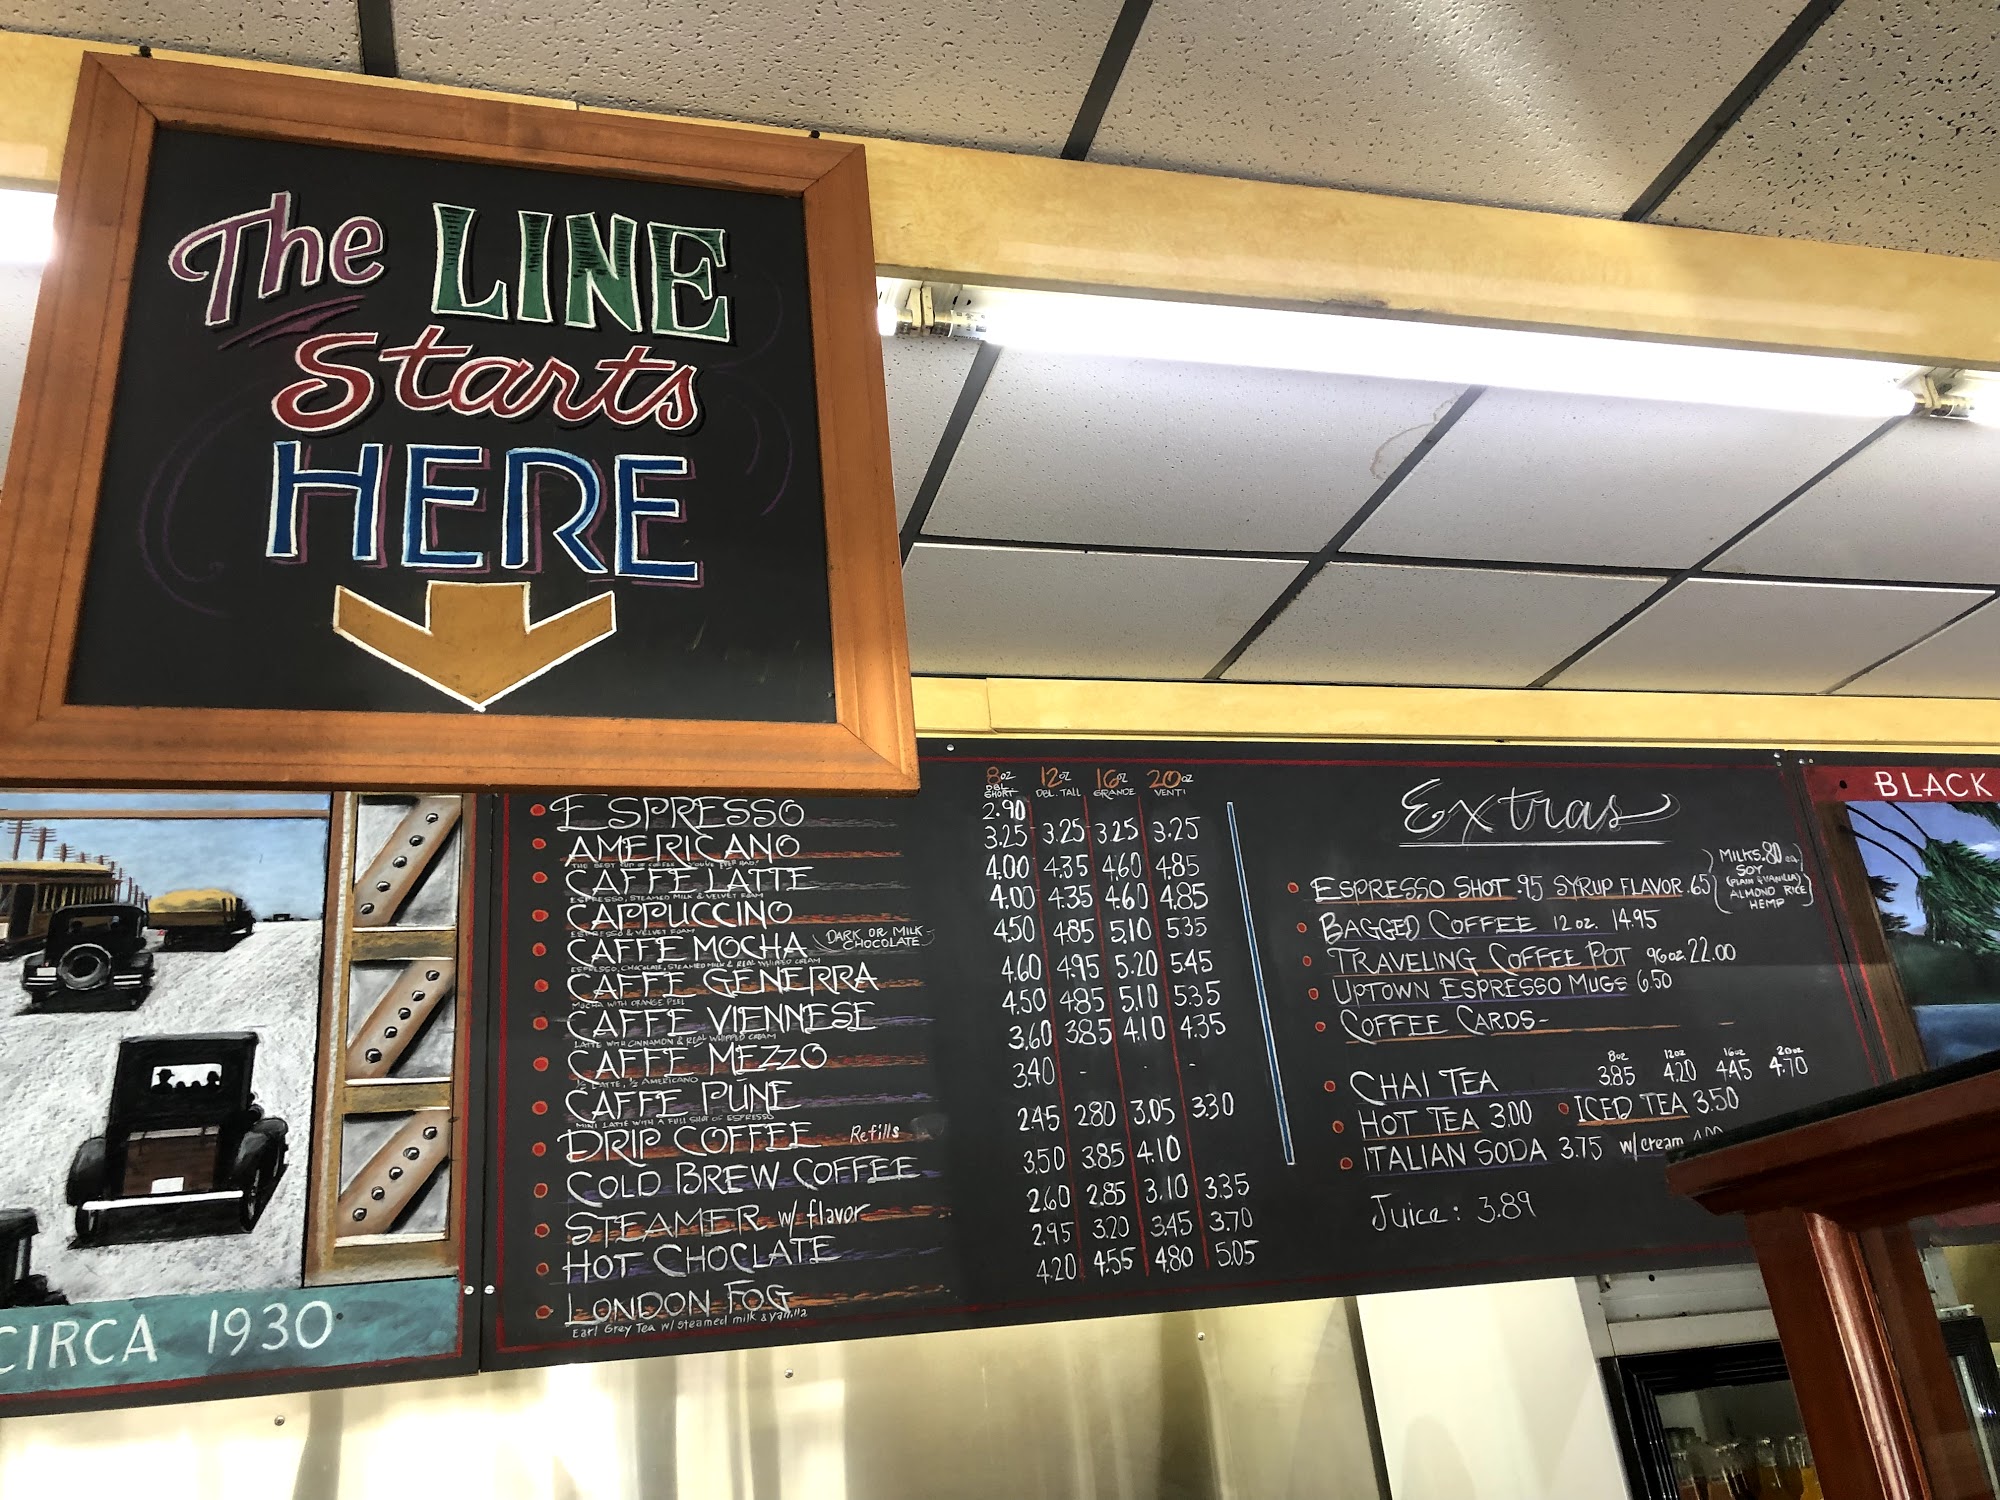 The LINE
Starts
HERE
8oz 12oz 16oz 20oz
DBL. SHORT DBL. TALL GRANDE VENTI
ESPRESSO 2.90
AMERICANO 3.25 3.25 3.25 3.25
THE BEST CUP OF COFFEE YOU'VE EVER HAD!
CAFFE LATTE 4.00 4.35 4.60 4.85
ESPRESSO, STEAMED MILK & VELVET FOAM
CAPPUCCINO 4.00 4.35 4.60 4.85
ESPRESSO & VELVET FOAM
CAFFE MOCHA DARK OR MILK CHOCOLATE 4.50 4.85 5.10 5.35
ESPRESSO, CHOCOLATE, STEAMED MILK & REAL WHIPPED CREAM
CAFFE GENERRA 4.60 4.95 5.20 5.45
MOCHA WITH ORANGE PEEL
CAFFE VIENNESE 4.50 4.85 5.10 5.35
LATTE WITH CINNAMON & REAL WHIPPED CREAM
CAFFE MEZZO 3.60 3.85 4.10 4.35
1/2 LATTE, 1/2 AMERICANO
CAFFE PUNE 3.40 - - -
MINI LATTE WITH A FULL SHOT OF ESPRESSO
DRIP COFFEE Refills 2.45 2.80 3.05 3.30
COLD BREW COFFEE 3.50 3.85 4.10
STEAMER w/ flavor 2.60 2.85 3.10 3.35
HOT CHOCLATE 2.95 3.20 3.45 3.70
LONDON FOG 4.20 4.55 4.80 5.05
Earl Grey Tea w/ steamed milk & vanilla
Extras
ESPRESSO SHOT .95 SYRUP FLAVOR .65
MILKS .80 ea.
SOY
(PLAIN & VANILLA)
ALMOND RICE
HEMP
BAGGED COFFEE 12 oz. 14.95
TRAVELING COFFEE POT 96oz. 22.00
UPTOWN ESPRESSO MUGS 6.50
COFFEE CARDS-
8oz 12oz 16oz 20oz
CHAI TEA 3.85 4.20 4.45 4.70
HOT TEA 3.00 ICED TEA 3.50
ITALIAN SODA 3.75 w/cream
Juice: 3.89
BLACK
CIRCA 1930